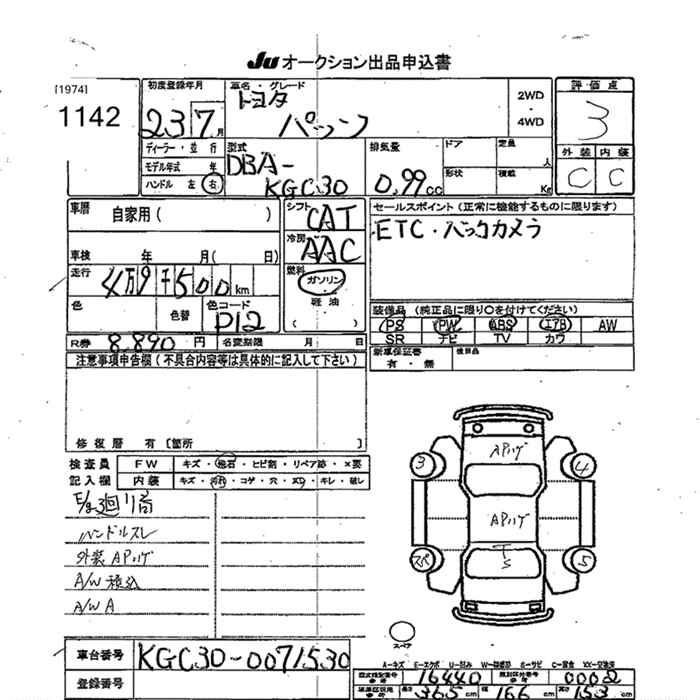 JU オークション出品申込書
[1974]
1142
初度登録年月
23 7 月
車名・グレード
トヨタ
パッソ
2WD
・
4WD
評価点
3
外装 内装
C C
ディーラー・並行
モデル年式 年
ハンドル 左 右
型式
DBA-
KGC30
排気量
0.99 CC
ドア
形状
定員
人
積載
Kg
車歴 自家用( )
車検 年 月( 日)
走行 4万9千500 km
色 色替 色コード
P12
シフト CAT
冷房 AAC
燃料 ガソリン
軽油
( )
セールスポイント(正常に機能するものに限ります)
ETC・バックカメラ
装備品(純正品に限り○を付けてください)
PS PW ABS エアB AW
SR ナビ TV カワ
新車保証書
有・無
後日品
R券 8,890 円 名変期限 月 日
注意事項申告欄(不具合内容等は具体的に記入して下さい)
修復歴 有[箇所 ]
検査員 FW キズ・飛石・ヒビ割・リペア跡・×要
記入欄 内装 キズ・汚れ・コゲ・穴・スレ・キレ・破レ
ハンドルスレ
外装 APハゲ
A/W 積込
A/W A
APハゲ
APハゲ
3
4
スペ
5
スペア
A-キズ E-エクボ U-凹み
車台番号 KGC30-0071530
登録番号
型式指定番号 16440 類別区分番号 0002
長さ 365 cm 幅 166 cm 高さ 153 cm